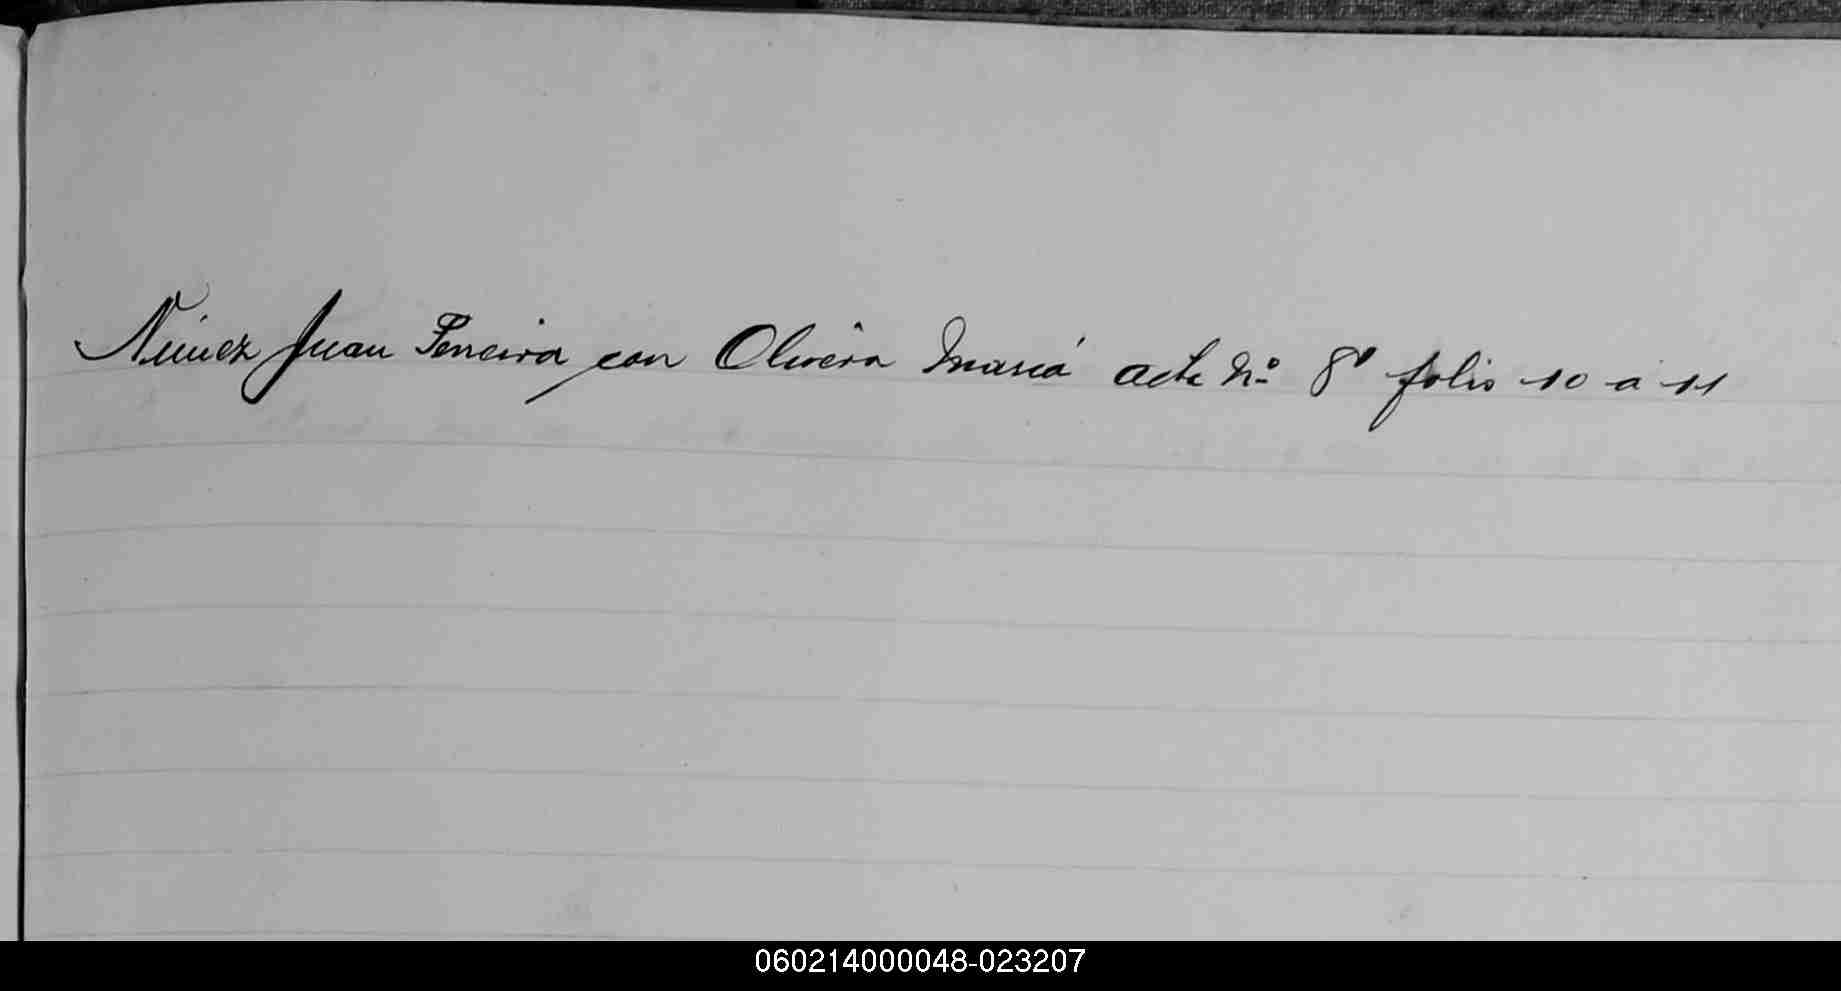 Núnez Juan Perreira con Olivera María acta Nº 8 folio 10 a 11
060214000048-023207